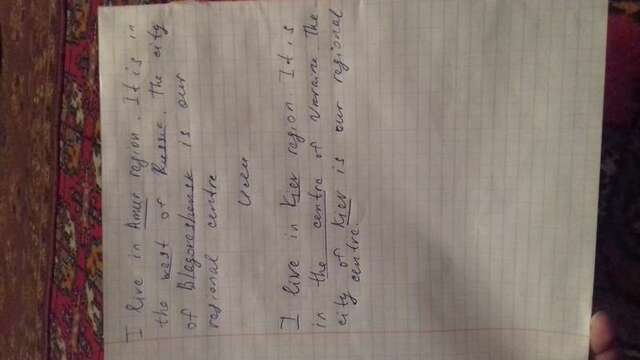 I live in Amur region. It is in
the west of Russia. The city
of Blagoveshensk is our
regional centre
Или
I live in Kiev region. It is
in the centre of Ukraine. The
city of Kiev is our regional
centre.